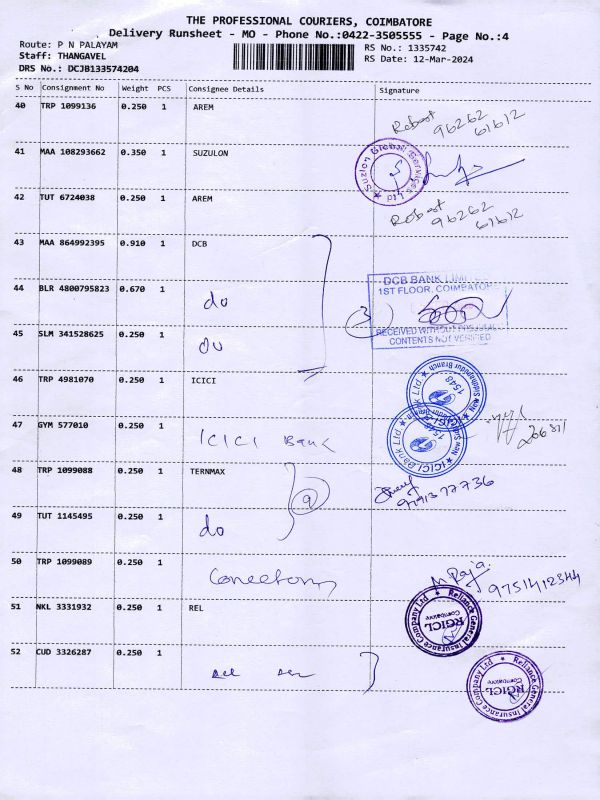 THE PROFESSIONAL COURIERS, COIMBATORE
Delivery Runsheet - MO - Phone No.:0422-3505555 - Page No.:4
Route: P N PALAYAM
RS No.: 1335742
Staff: THANGAVEL
RS Date: 12-Mar-2024
DRS No.: DCJB133574204
S No Consignment No Weight PCS Consignee Details Signature
40 TRP 1099136 0.250 1 AREM
96262
61612
41 MAA 108293662 0.350 1 SUZULON
Suzlon Global Services Ltd
42 TUT 6724038 0.250 1 AREM
96262
61612
43 MAA 864992395 0.910 1 DCB
44 BLR 4800795823 0.670 1 do
DCB BANK LIMITED
1ST FLOOR, COIMBATORE
3
RECEIVED WITHOUT PREJUDICE
CONTENTS NOT VERIFIED
45 SLM 341528625 0.250 1 do
46 TRP 4981070 0.250 1 ICICI
1548
47 GYM 577010 0.250 1 ICICI Bank
ICICI Bank Ltd
48 TRP 1099088 0.250 1 TERNMAX
49 TUT 1145495 0.250 1 do
50 TRP 1099089 0.250 1
M Raja
9751412344
51 NKL 3331932 0.250 1 REL
Reliance General Insurance Company Ltd
RGICL
Coimbatore
52 CUD 3326287 0.250 1
Reliance General Insurance Company Ltd
RGICL
Coimbatore